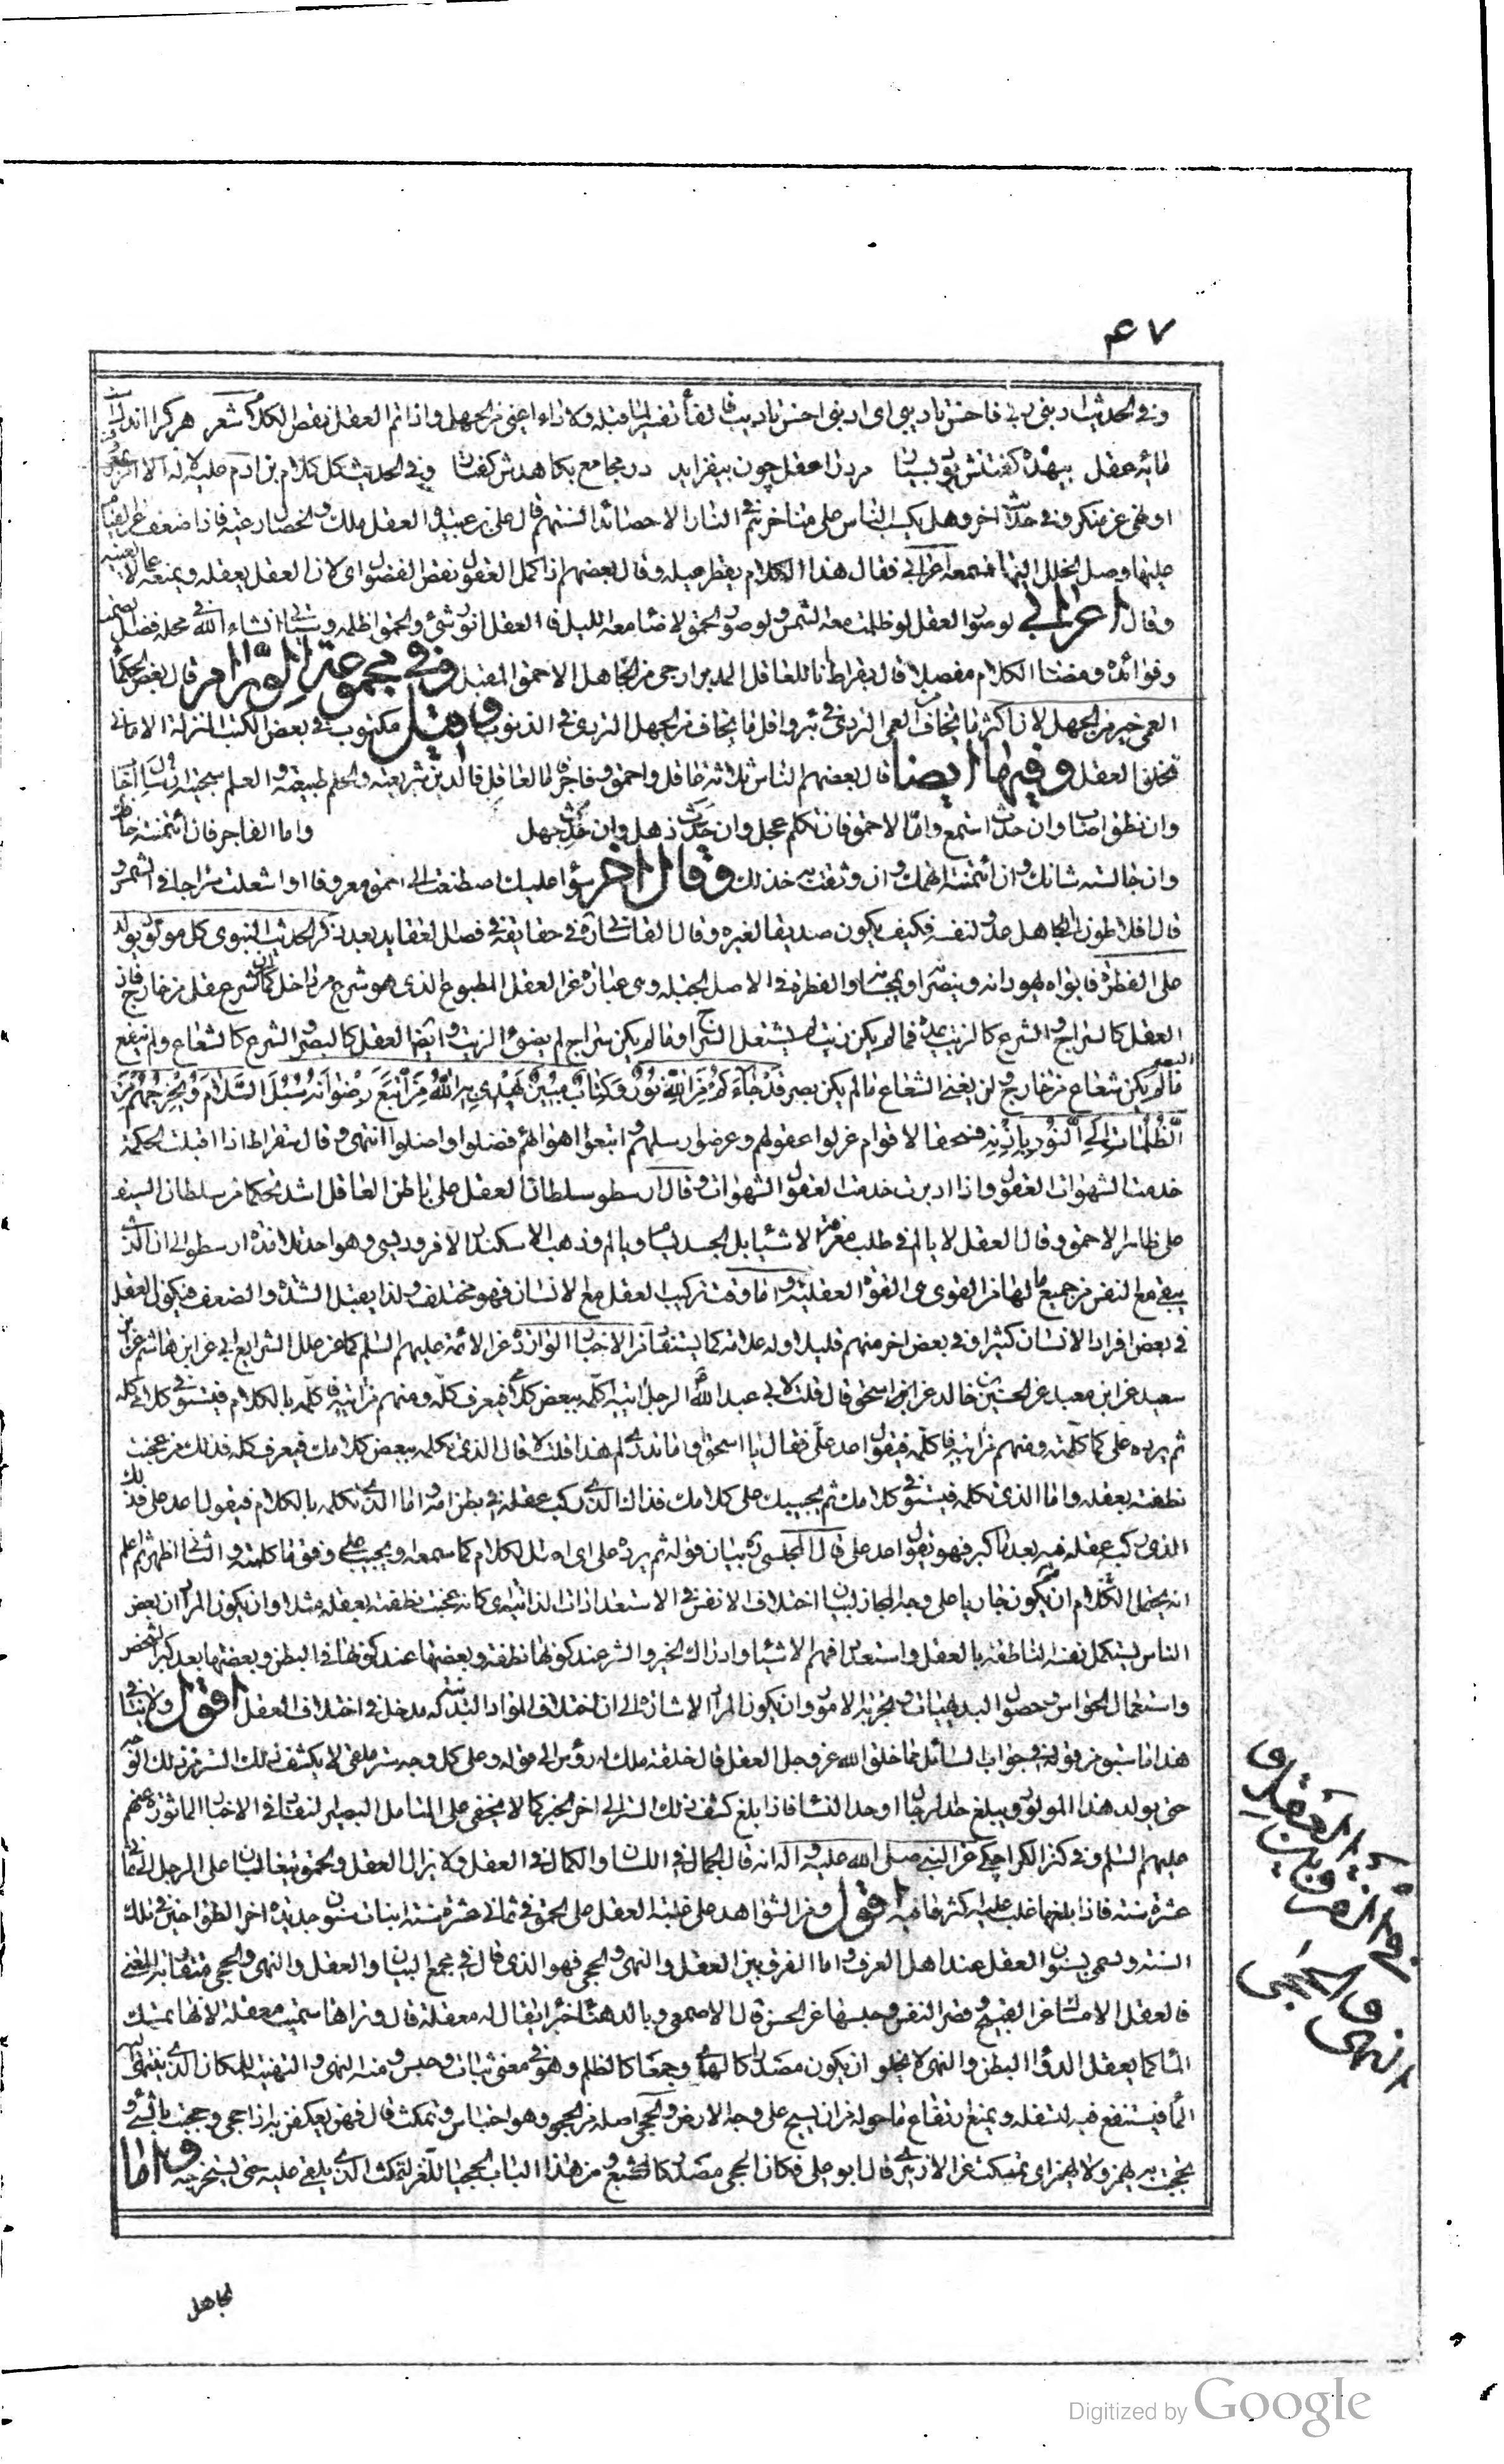 ۴۷
وفي الحديث ادبني ربي فاحسن تاديبي اي ادبني احسن تاديب فا لفاء تفسير لما قبله ولا داء اعيى من الجهل واذا تم العقل نقص الكلام شعر هر كرا اندك
مايه عقل بيهده گفتنش بود بسيار مرد را عقل چون بيفزايد در مجامع بكاهدش گفتار وفي الحديث كل كلام بن ادم عليه لا له الا امر بمعروف
او نهي عن منكر وفي حديث اخر وهل يكب الناس على مناخرهم في النار الا حصائد السنتهم قال علي بن عبيدة العقل ملك والخصال رعية فاذا ضعف عن القيام
عليها وصل الخلل اليها فسمعه اعرابي فقال هذا الكلام يقطر عسله وقال بعضهم اذا كمل العقول نقص الفضول اي لان العقل يعقله ويمنعه عما لا يعنيه
وقال اعرابي لو صور العقل لو ظلمت معه الشمس ولو صور الحمق لاضاء معه الليل فالعقل انور شئ والحمق اظلمه وسياتي انشاء الله في محله فضل الصمت
وفوائده ومضار الكلام مفصلا قال بقراط انا للعاقل المدبر ارجى من الجاهل الاحمق المقبل وفي مجموعة ورام قال بعض الحكماء
العمى خير من الجهل لان اكثر ما يخاف من العمى التردي في بئر واقل ما يخاف من الجهل التردي في الذنوب وقيل مكتوب في بعض الكتب المنزلة الامانى
تخلق العقل وفيها ايضا قال بعضهم الناس ثلاثة عاقل واحمق وفاجر فالعاقل فالدين شريعته والحلم طبيعته والعلم سجيته ان سئل اجاب
وان نطق اصاب وان حدث استمع واما الاحمق فان تكلم عجل وان حدث ذهل وان حدث جهل واما الفاجر فان ائتمنته خانك
وان جالسته شانك وان ائتمنته اتهمك وان وثقت به خذلك وقال اخر سواء عليك اصطنعت الى احمق معروفا او اشعلت سراجا في الشمس و
قال افلاطون الجاهل عدو لنفسه فكيف يكون صديقا لغيره وقال القاساني ره في حقايقه في فصل العقايد بعد ذكر الحديث النبوي كل مولود يولد
على الفطرة فابواه يهودانه وينصرانه او يمجسانه والفطرة في الاصل الجبلة وهي عبارة عن العقل المطبوع الذي هو شرع من داخل كما ان الشرع عقل من خارج فاذ
العقل كالسراج والشرع كالزيت يمده فما لم يكن زيت لم يشتعل السراج وما لم يكن سراج لم يضئ الزيت وايضا العقل كالبصر والشرع كالشعاع ولم ينفع
البصر
ما لم يكن شعاع من خارج ولن يغني الشعاع ما لم يكن بصر قد جاءكم من الله نور وكتاب مبين يهدي به الله من اتبع رضوانه سبل السلام ويخرجهم من
الظلمات الى النور باذنه فسحقا لاقوام عزلوا عقولهم وعرضوا رسلهم واتبعوا اهوائهم فضلوا واضلوا انتهى وقال سقراط اذا اقبلت الحكمة
خدمت الشهوات العقول واذا ادبرت خدمت العقول الشهوات وقال ارسطو سلطان العقل على باطن العاقل اشد تحكما من سلطان السيف
على ظاهر الاحمق وقال العقل لا يالم في طلب معرفة الاشياء بل الجسد يتعب ويالم وذهب الاسكندر الافروديسي وهو احد تلامذة ارسطو الى ان الذي
يبقى مع النفس من جميع ما لها من القوى هي القوة العقلية واما وقت تركيب العقل مع الانسان فهو مختلف ولذا يقبل الشدة والضعف فيكون العقل
في بعض افراد الانسان كثيرا وفي بعض اخر منهم قليلا وله علامة كما يستفاد من الاخبار الواردة عن الائمة عليهم السلم كما عن علل الشرايع ابي عن ابن هاشم عن ابن
سعيد عن ابن معبد عن الحسين بن خالد عن ابن اسحق قال قلت لابي عبد الله الرجل اتيه اكلمه ببعض كلامي فيعرف كله ومنهم من اتيه فاكلمه بالكلام فيستوفي كلامي كله
ثم يرده علي كما كلمته ومنهم من اتيه فاكلمه فيقول اعد علي فقال يا اسحق وما تدري لم هذا قلت لا قال الذي تكلمه ببعض كلامك فيعرف كله فذلك من عجنت
نطفته بعقله واما الذي تكلمه فيستوفي كلامك ثم يجيبك على كلامك فذلك الذي ركب عقله في بطن امه واما الذي تكلمه بالكلام فيقول اعد علي فذلك
الذي ركب عقله فيه بعد ما كبر فهو يقول اعد علي قال المجلسي ره بيان قوله ثم يرده علي اي اصل الكلام كما سمعه او يجيب على وفق ما كلمته والثاني اظهر ثم اعلم
انه يحتمل الكلام ان يكون جاريا على وجه المجاز لبيان اختلاف الانفس في الاستعدادات الذاتية اي كانه عجنت نطفته بعقله مثلا وان يكون المراد ان بعض
الناس يستكمل نفسه الناطقة بالعقل واستعداد فهم الاشياء وادراك الخير والشر عند كونها نطفة وبعضها عند كونها في البطن وبعضها بعد كبر الشخص
واستعمال الحواس وحصول البديهيات وتجربة الامور وان يكون المراد الاشارة الى ان اختلاف المواد البدنية له مدخل في اختلاف العقل اقول ولا ينافي
هذا ما سبق من قوله في جواب السائل مما خلق الله عز وجل العقل قال خلقه ملك له رؤس الى قوله وعلى كل وجه ستر ملقى لا يكشف ذلك الستر من ذلك الوجه
حتى يولد هذا المولود ويبلغ حد الرجال او حد النساء فاذا بلغ كشف ذلك الستر الى اخر الخبر كما لا يخفى على المتامل البصير لنقاد في الاخبار الماثورة عنهم
عليهم السلم وفي كنز الكراجكي عن النبي صلى الله عليه واله انه قال الجمال في اللسان والكمال في العقل ولا يزال العقل والحمق يتغالبان على الرجل الى ثماني
عشرة سنة فاذا بلغها غلب عليه اكثرهما فيه اقول ومن الشواهد على غلبة العقل على الحمق في ثماني عشرة سنة انبات سنون جديدة اخر الطواحين في تلك
السنة وتسمى بسنون العقل عند اهل العرف واما الفرق بين العقل والنهى والحجى فهو الذي قال في مجمع البيان والعقل والنهى والحجى متقاربة المعنى
فالعقل الامساك عن القبيح وقصر النفس وحبسها عن الحسن قال الاصمعي وبالدهناء خبراء يقال له معقلة قال وتراها سميت معقلة لانها تمسك
الماء كما يعقل الدواء البطن والنهى لا يخلو ان يكون مصدرا كالهدى او جمعا كالظلم وهو في معنى ثبات وحبس ومنه النهي والتنهية للمكان الذي ينتهي اليه
الماء فيستنقع فيه لتسفله ويمنع ارتفاع ما حوله من ان يسيح على وجه الارض والحجى اصله من الحجو وهو احتباس وتمكث قال فهن يعكفن به اذا حجى وحجيت بالشئ و
تحجيت به يهمز ولا يهمز اي تمسكت عن الازهري قال ابو علي فكان الحجى مصدر كالشبع ومن هذا الباب الحجيا للغز لتمكث الذي يلقى عليه حتى يستخرجه واما
في الفرق بين العقل و
النهى والحجى
لجاهل
Digitized by Google